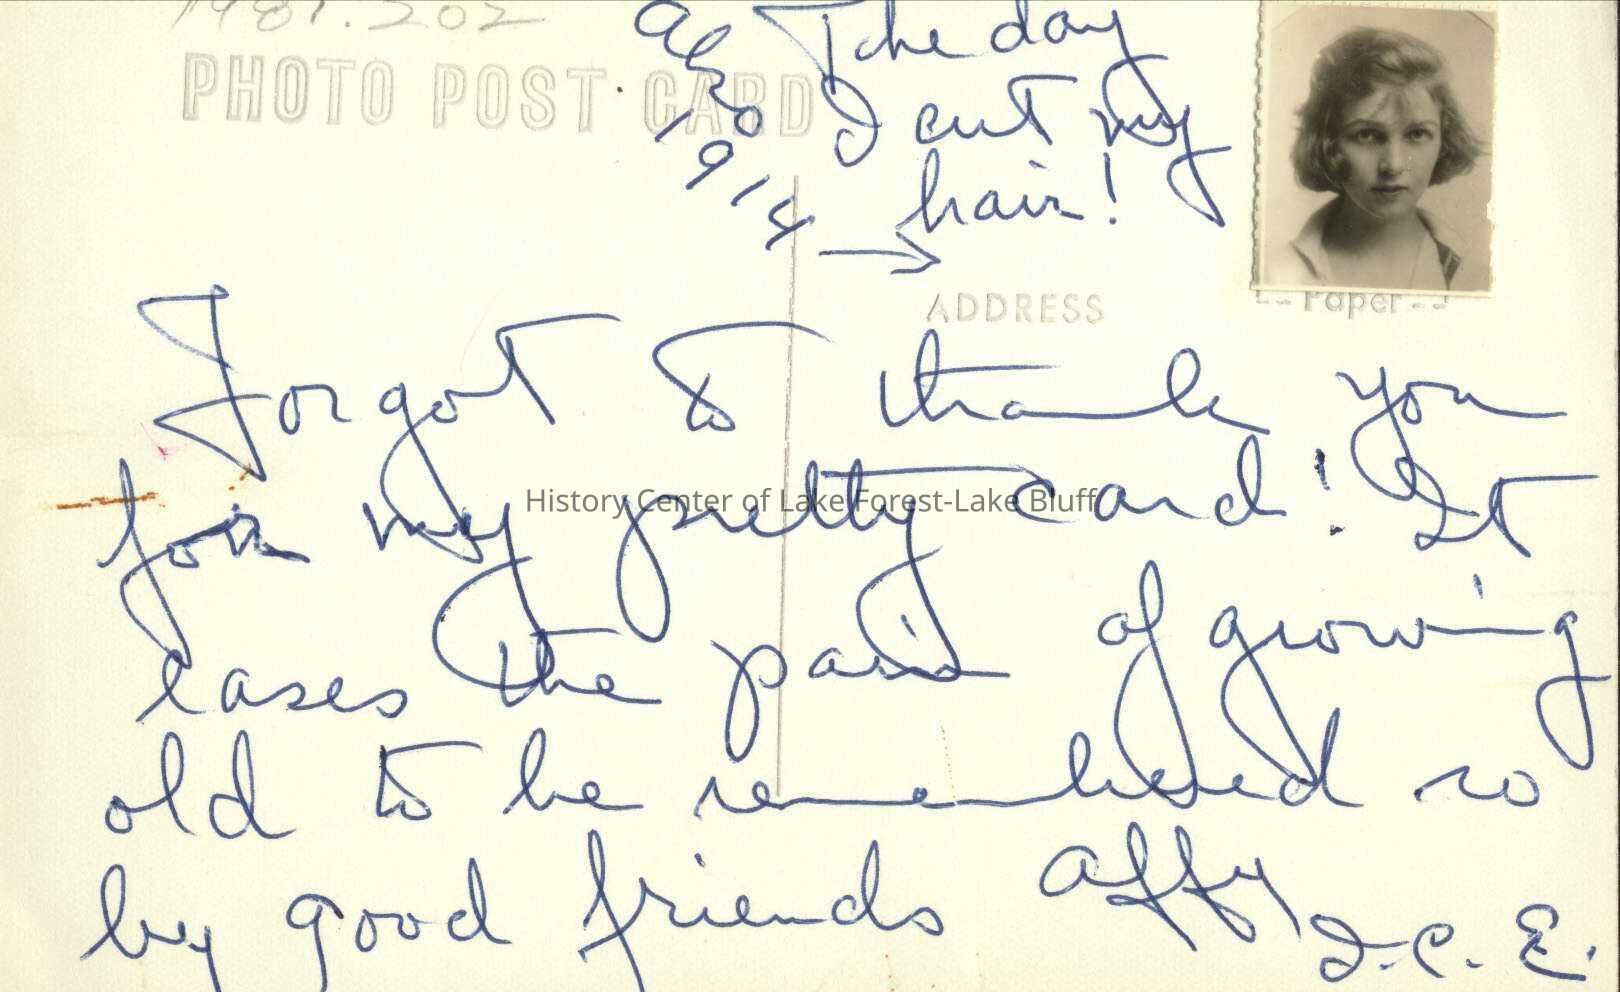 1981.202
PHOTO POST CARD
The day
I cut my
hair!
1914
ADDRESS
Paper
Forgot to thank you
for my pretty card! It
eases the pain of growing
old to be remembered so
by good friends Affy
I.C.E.
History Center of Lake Forest-Lake Bluff